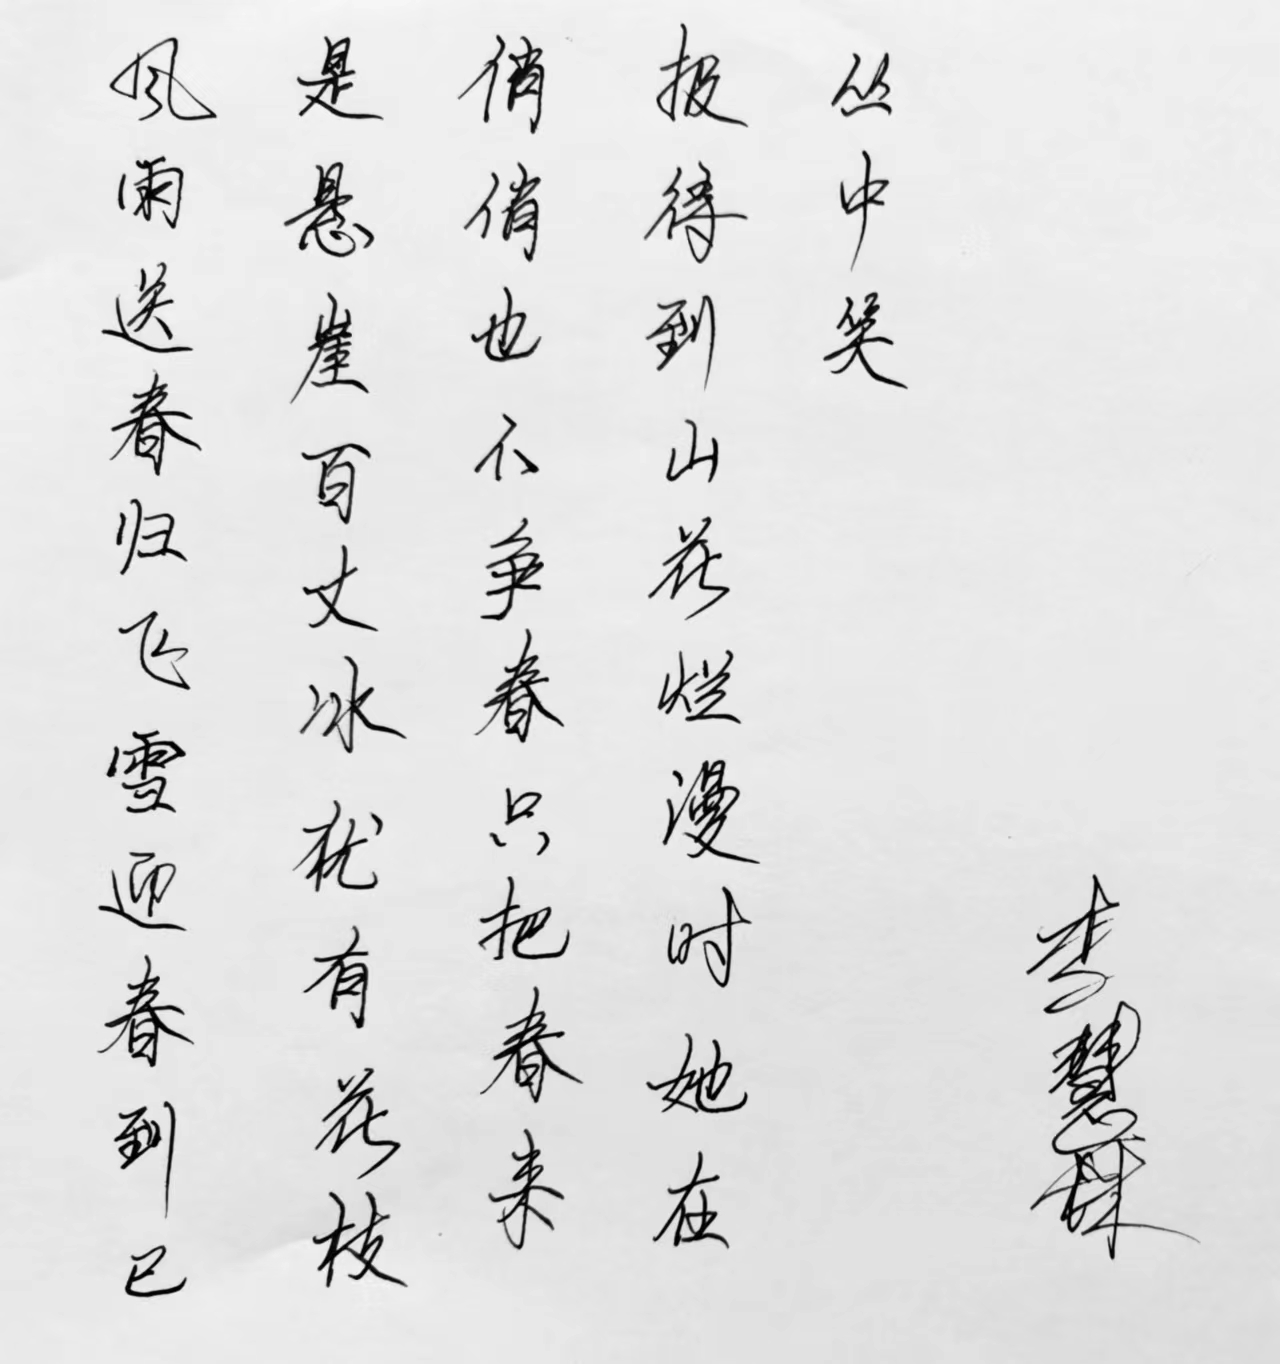 风雨送春归飞雪迎春到已
是悬崖百丈冰犹有花枝
俏俏也不争春只把春来
报待到山花烂漫时她在
丛中笑
李慧